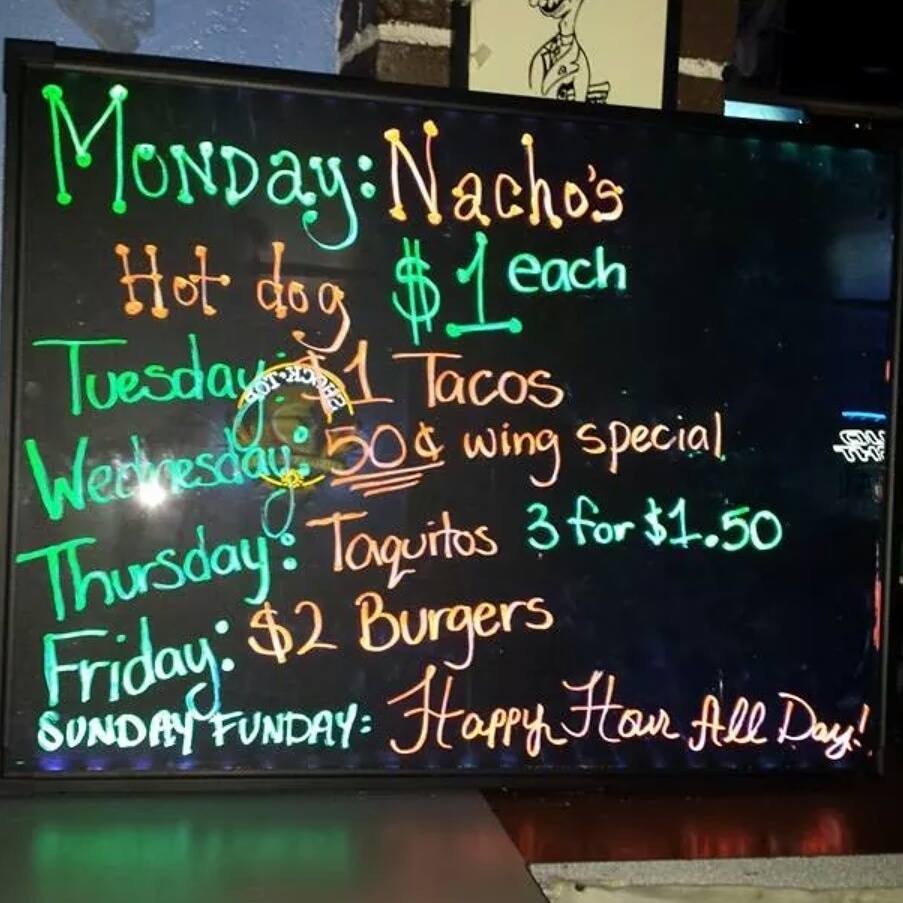 Monday: Nacho's
Hot dog $1 each
Tuesday: $1 Tacos
Wednesday: 50¢ wing special
Thursday: Taquitos 3 for $1.50
Friday: $2 Burgers
SUNDAY FUNDAY: Happy Hour All Day!